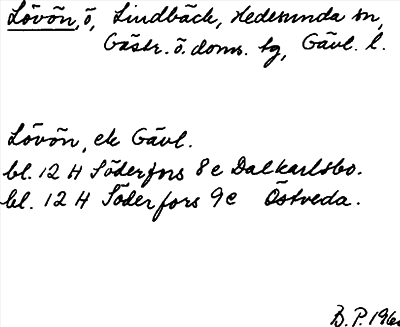 Lövön, ö, Lindbäck, Hedesunda sn,
Gästr. ö. doms. tg, Gävl. l.
Lövön, ek Gävl.
bl. 12 H Söderfors 8e Dalkarlsbo.
bl. 12 H Söderfors 9e Östveda.
B.P. 196